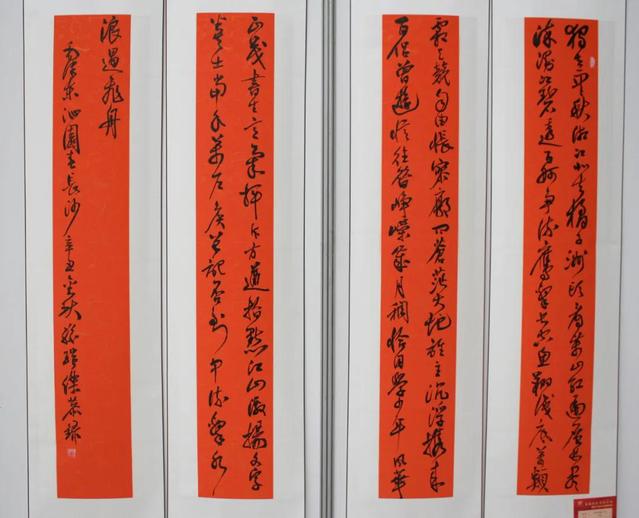 獨立寒秋湘江北去橘子洲頭看萬山紅遍層林盡
染漫江碧透百舸爭流鷹擊長空魚翔淺底萬類
霜天競自由悵寥廓問蒼茫大地誰主沉浮攜來
百侶曾遊憶往昔崢嶸歲月稠恰同學少年風華
正茂書生意氣揮斥方遒指點江山激揚文字
糞土當年萬戶侯曾記否到中流擊水
浪遏飛舟
毛澤東沁園春長沙辛丑金秋孫瑞傑恭錄